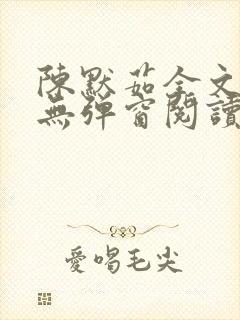 陳默茹全文
無彈窗閱讀
愛喝毛尖